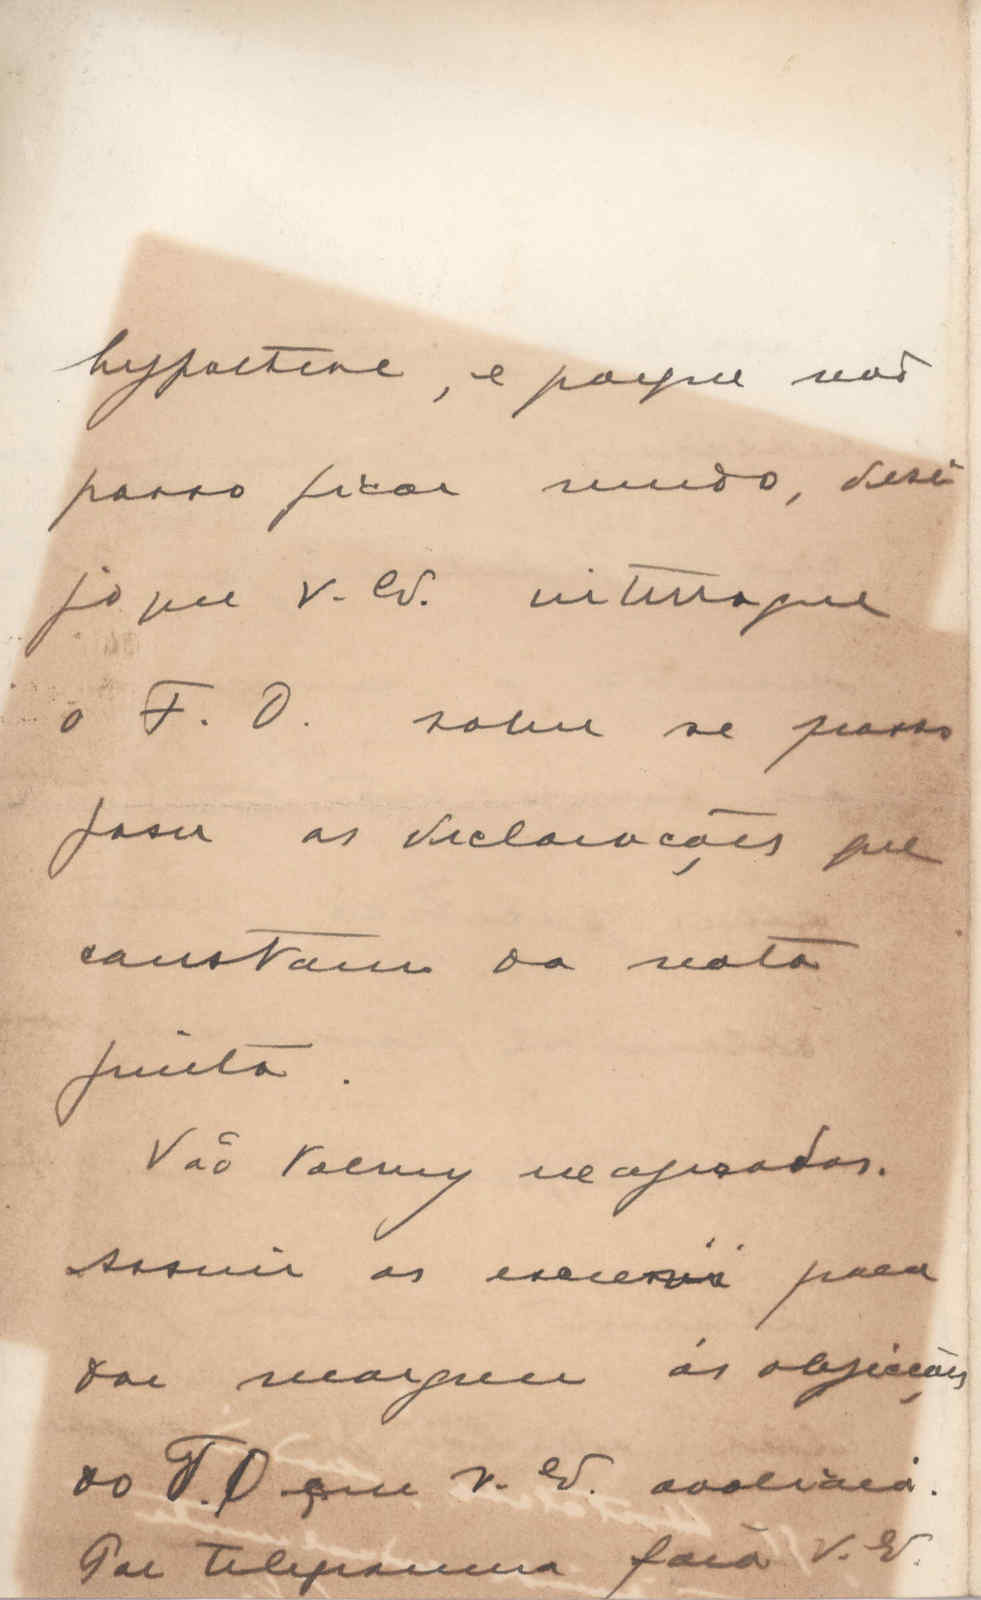 hypothese, e porque não
posso ficar mudo, dese
jo que V. Ex. interrogue
o F. O. sobre se posso
faser as declarações que
constam da nota
junta.
Vão
assim as escrevi para
dar margem ás objecções
do F. O que V. Ex. avaliará.
Por telegramma fará V. Ex.